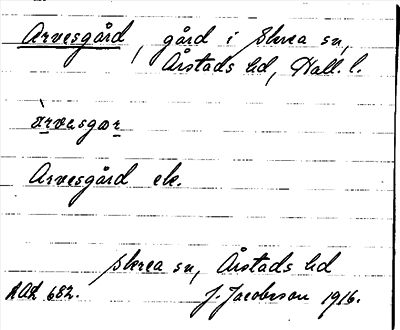 Arvesgård, gård i Skrea sn,
Årstads hd, Hall. l.
àrvesgɷr
Arvesgård ek.
Skrea sn, Årstads hd
AAL 682. J. Jacobsson 1916.